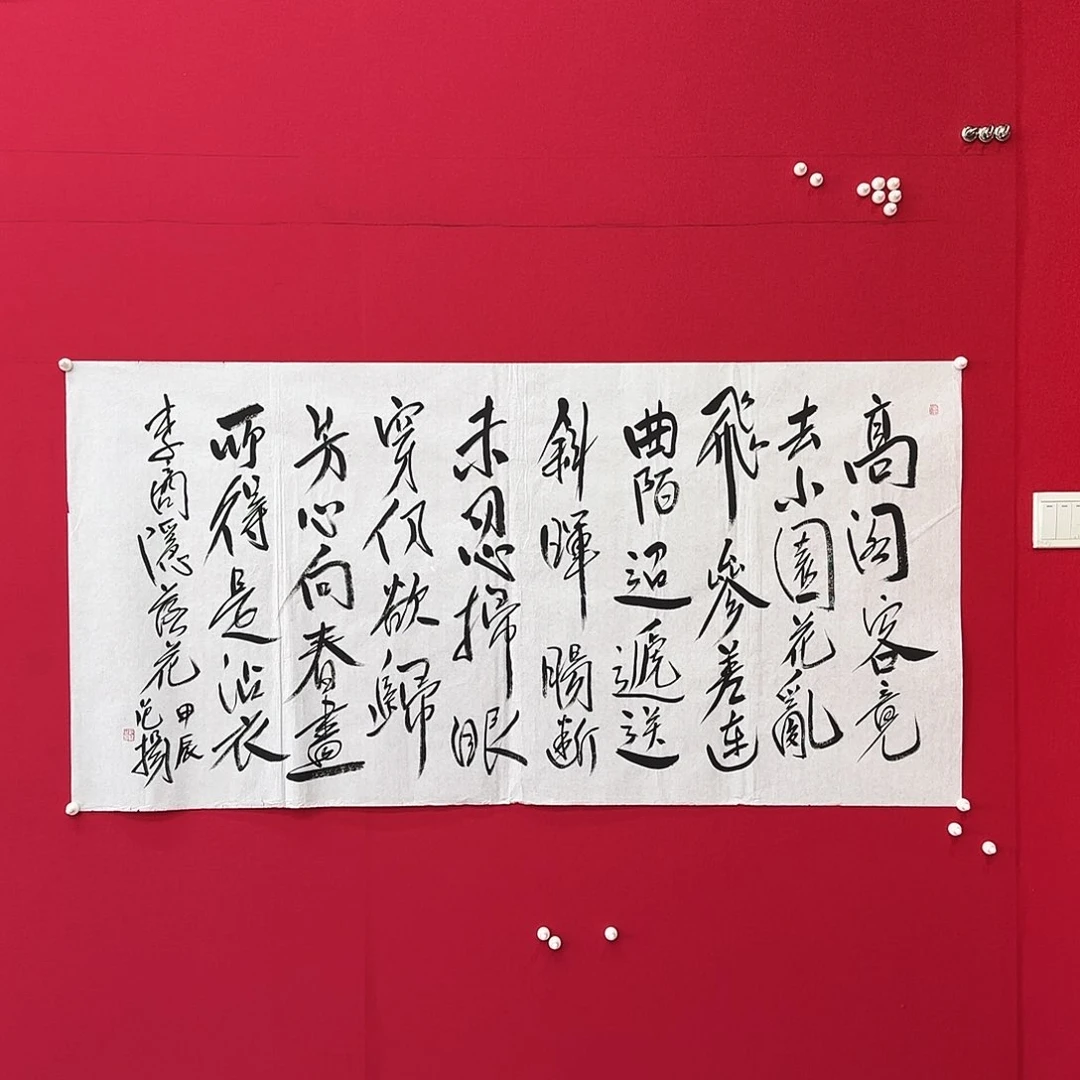 高閣客竟
去小園花亂
飛參差連
曲陌迢遞送
斜暉腸斷
未忍掃眼
穿仍欲歸
芳心向春盡
所得是沾衣
李商隱落花
甲辰
范揚